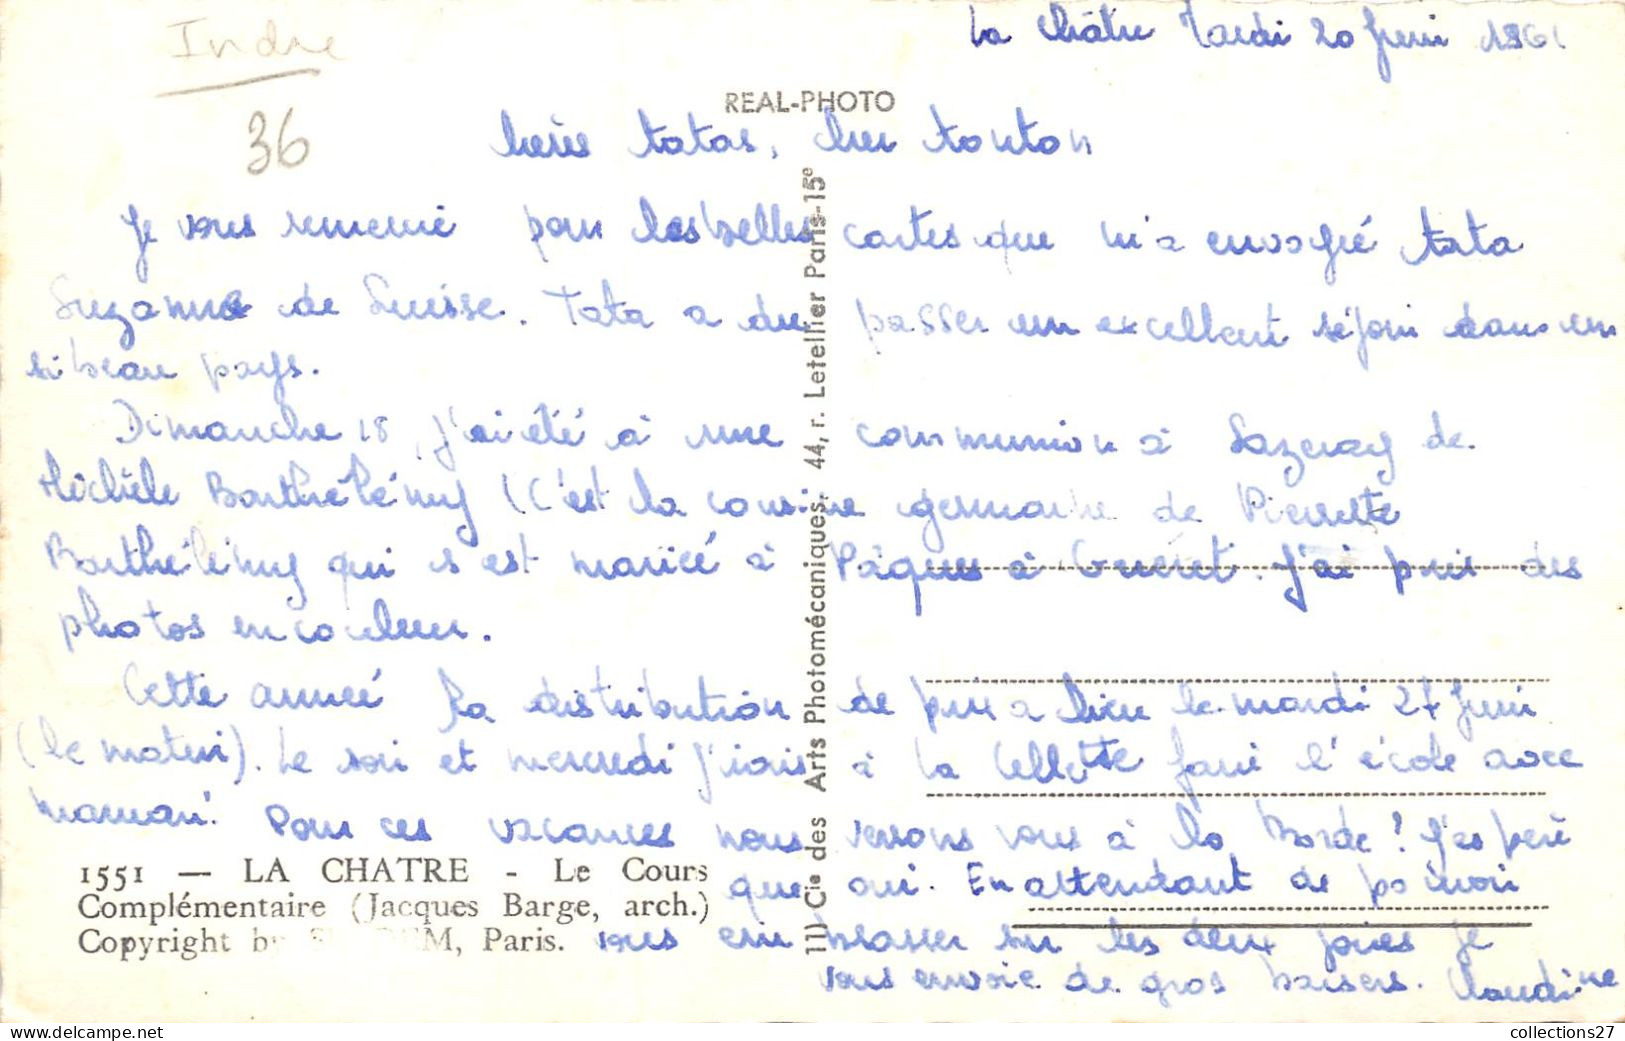 Indre
36
La Châtre Mardi 20 Juin 1961
REAL-PHOTO
Chères tatas, cher tonton
Je vous remercie pour les belles cartes que m'a envoyé tata
Suzanne de Suisse. Tata a du passer un excellent séjour dans un
si beau pays.
Dimanche 18, j'ai été à une communion à Lazeray de
Michèle Barthélémy (C'est la cousine germaine de Pierrette
Barthélémy qui s'est mariée à Pâques à Gueret. J'ai pris des
photos en couleur.
Cette année la distribution de prix a lieu le mardi 27 Juin
(le matin). Le soir et mercredi j'irais à La Cellette faire l'école avec
maman. Pour ces vacances nous verrons vous à la Borde? J'espère
que oui. En attendant de pouvoir
vous embrasser sur les deux joues je
vous envoie de gros baisers. Claudine
1551 — LA CHATRE - Le Cours
Complémentaire (Jacques Barge, arch.)
Copyright by Paris.
11) Cie des Arts Photomécaniques, 44, r. Letellier Paris-15e
collections27